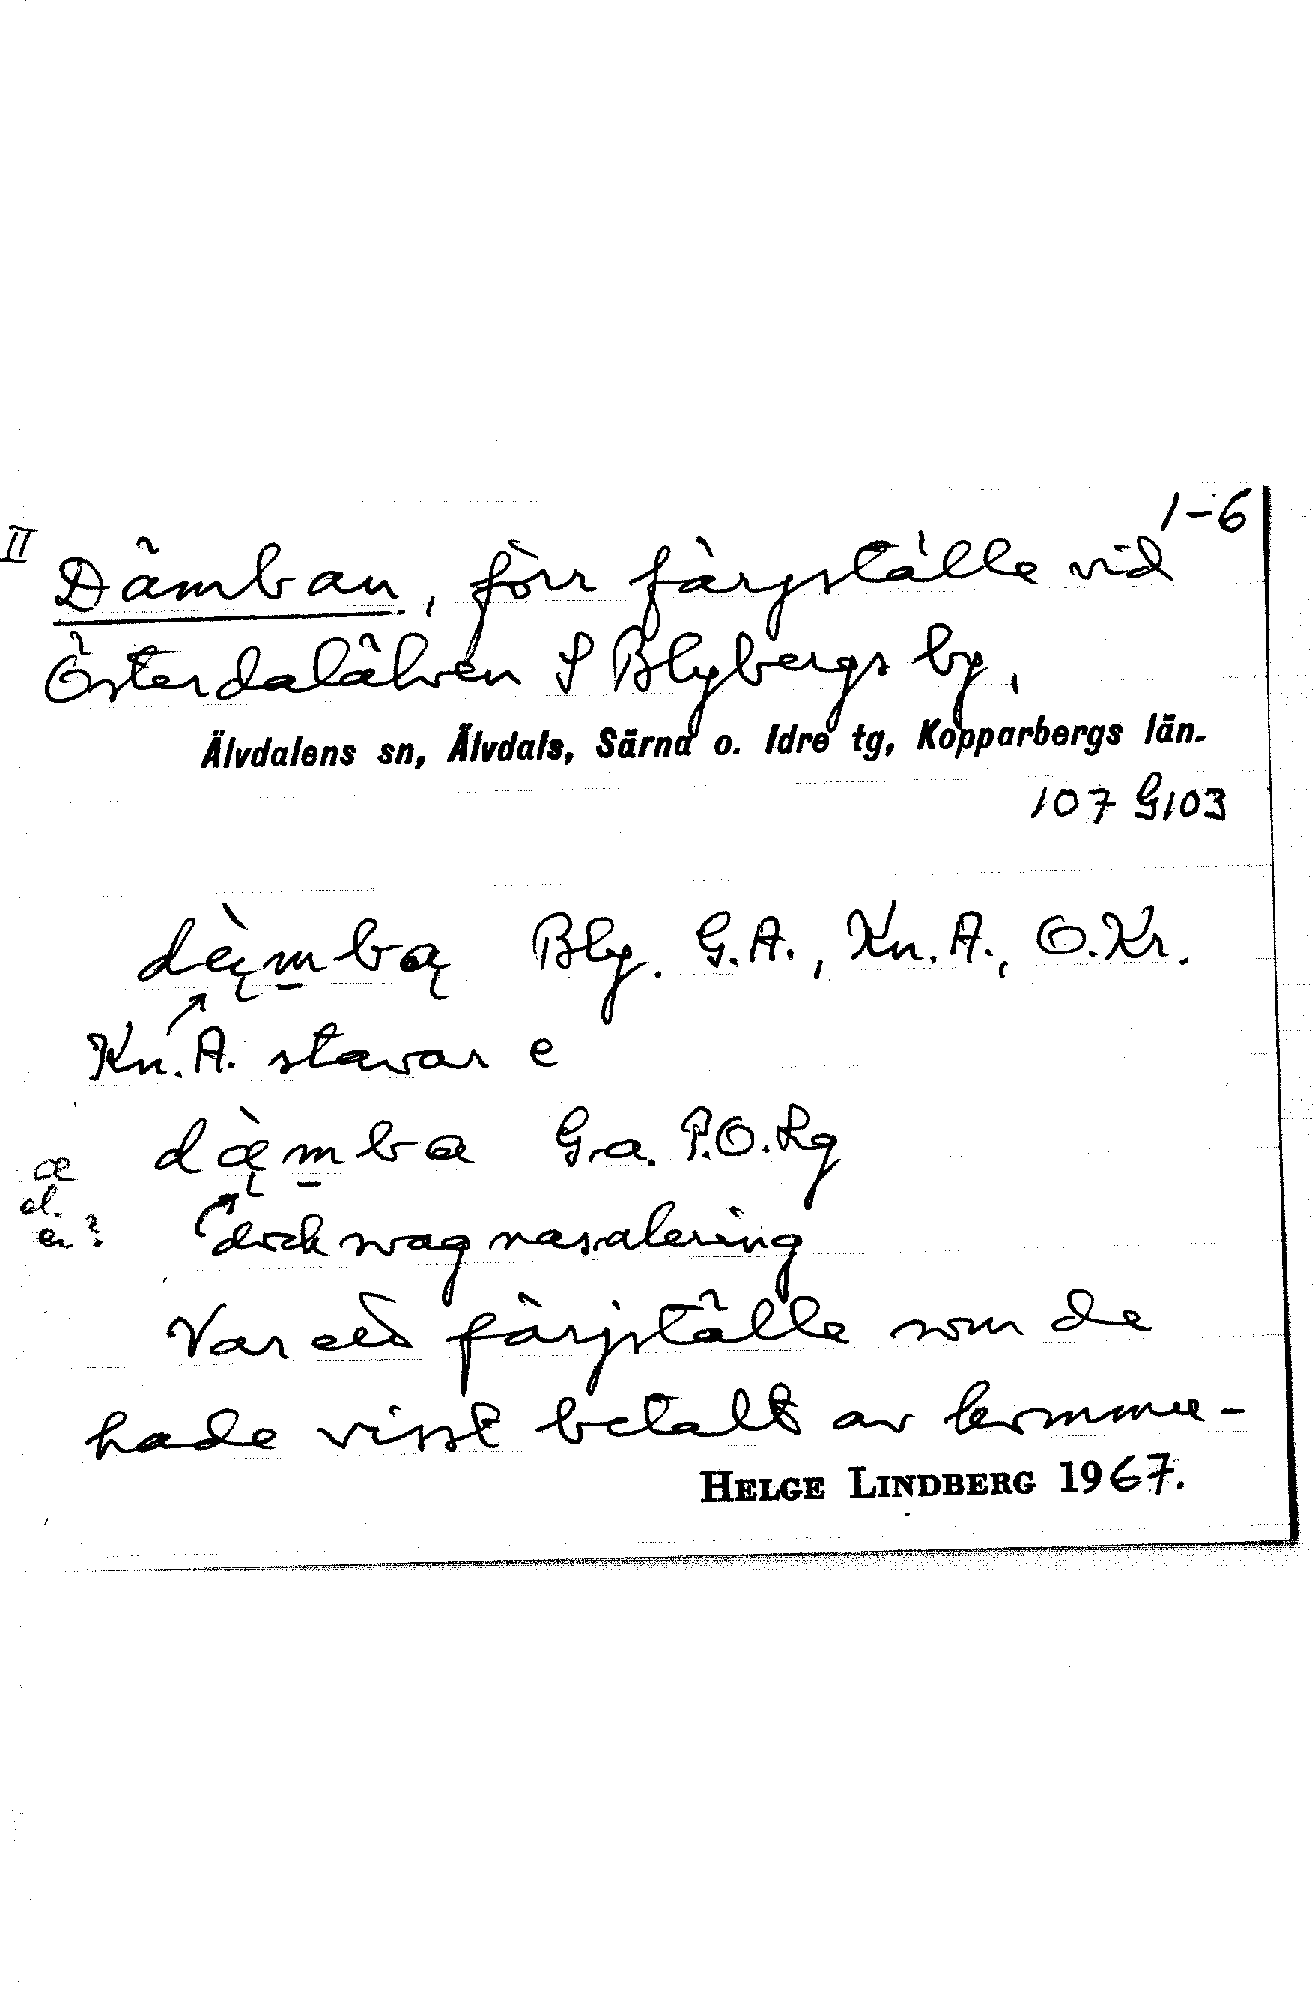 1-6
II
Dämban, förr färjställe vid
Österdalälven S Blybergs by.
Älvdalens sn, Älvdals, Särna o. Idre tg, Kopparbergs län.
107 G103
dę̀m̲bą Bly. G.A., Kn.A., O.Kr.
Kn.A. stavar e
dæ̨̀m̲ba Ga. P.O.Lg
æ
el.
e?
dock svag nasalering
Var ett färjställe som de
hade visst betalt av kommu-
HELGE LINDBERG 1967.